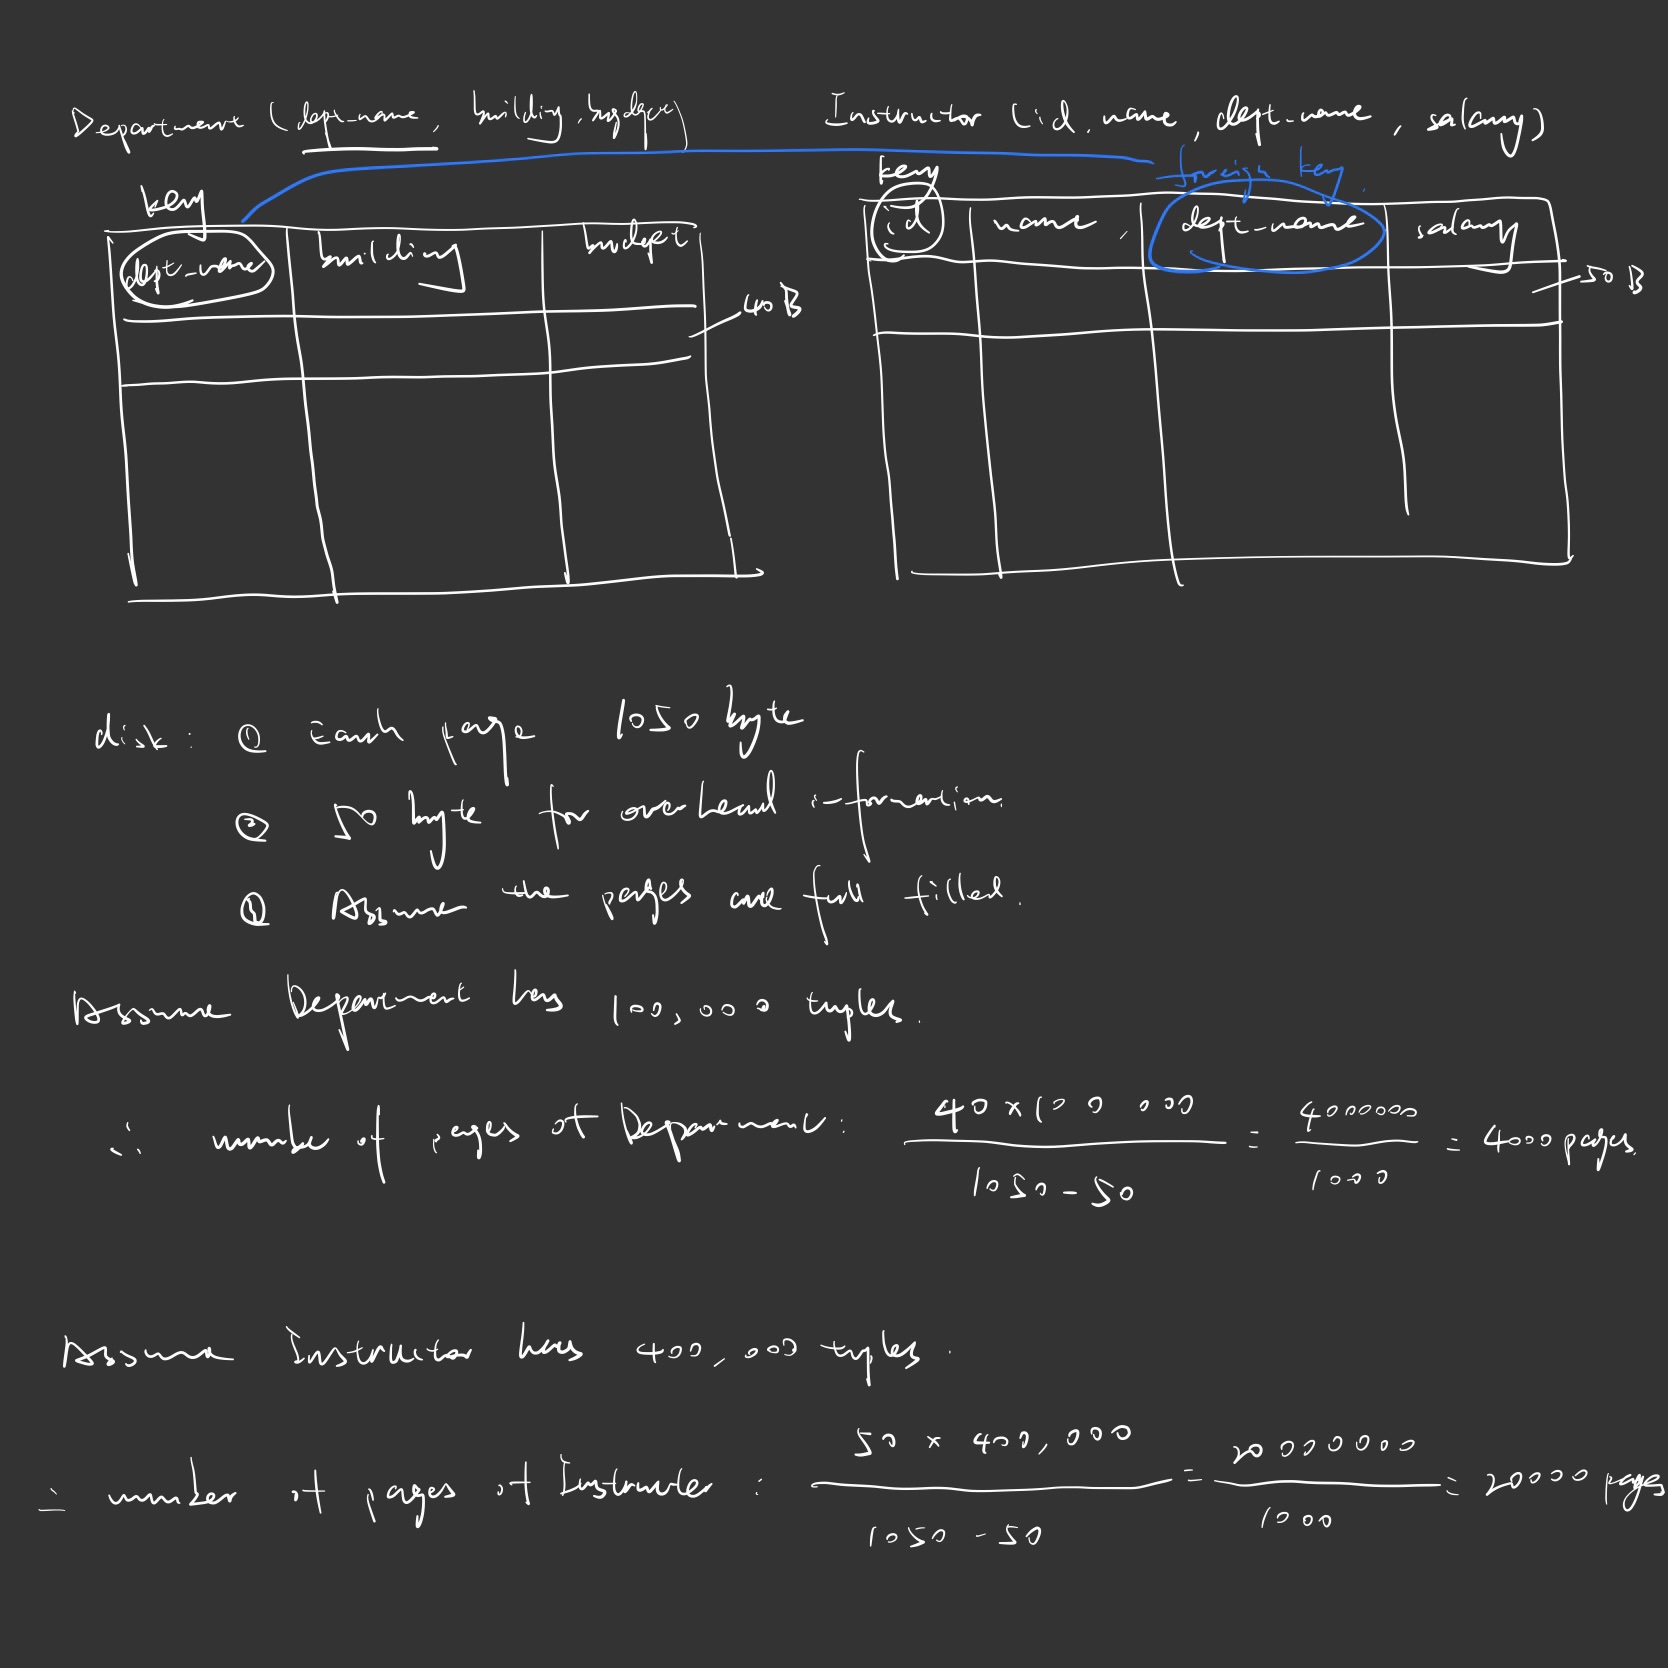 Department (dept_name, building, budget)
Instructor (id, name, dept_name, salary)
key
dept_name building budget
40 B
key foreign key
id name, dept_name salary
50 B
disk: ① Each page 1050 byte
② 50 byte for overhead information.
① Assume the pages are full filled.
Assume Department has 100,000 tuples.
∴ number of pages of Department: 40 × 100 000 / 1050 - 50 = 4000000 / 1000 = 4000 pages.
Assume Instructor has 400,000 tuples.
∴ number of pages of Instructor: 50 × 400,000 / 1050 - 50 = 20000000 / 1000 = 20000 pages